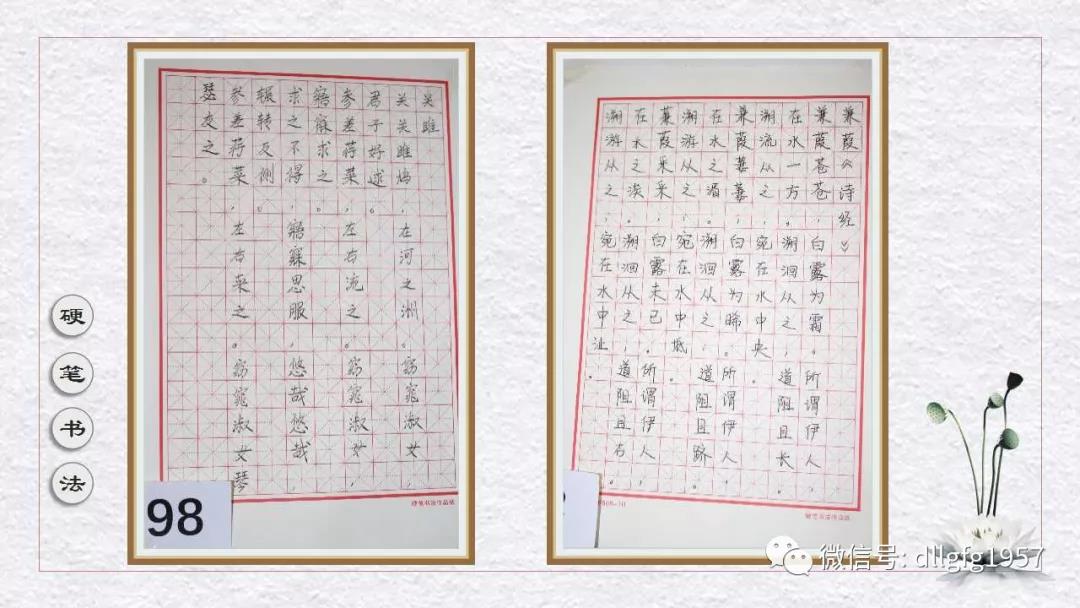 硬笔书法
关雎
关关雎鸠,在河之洲。窈窕淑女,
君子好逑。
参差荇菜,左右流之。窈窕淑女,
寤寐求之。
求之不得,寤寐思服。悠哉悠哉,
辗转反侧。
参差荇菜,左右采之。窈窕淑女琴
瑟友之。
98
硬笔书法作品纸
蒹葭《诗经》
蒹葭苍苍,白露为霜。所谓伊人,
在水一方。溯洄从之,道阻且长。
溯流从之,宛在水中央。
蒹葭萋萋,白露为晞。所谓伊人,
在水之湄。溯洄从之,道阻且跻。
溯游从之,宛在水中坻。
蒹葭采采,白露未已。所谓伊人,
在水之涘。溯洄从之,道阻且右。
溯游从之,宛在水中沚。
硬笔书法作品纸
微信号: dllgfg1957